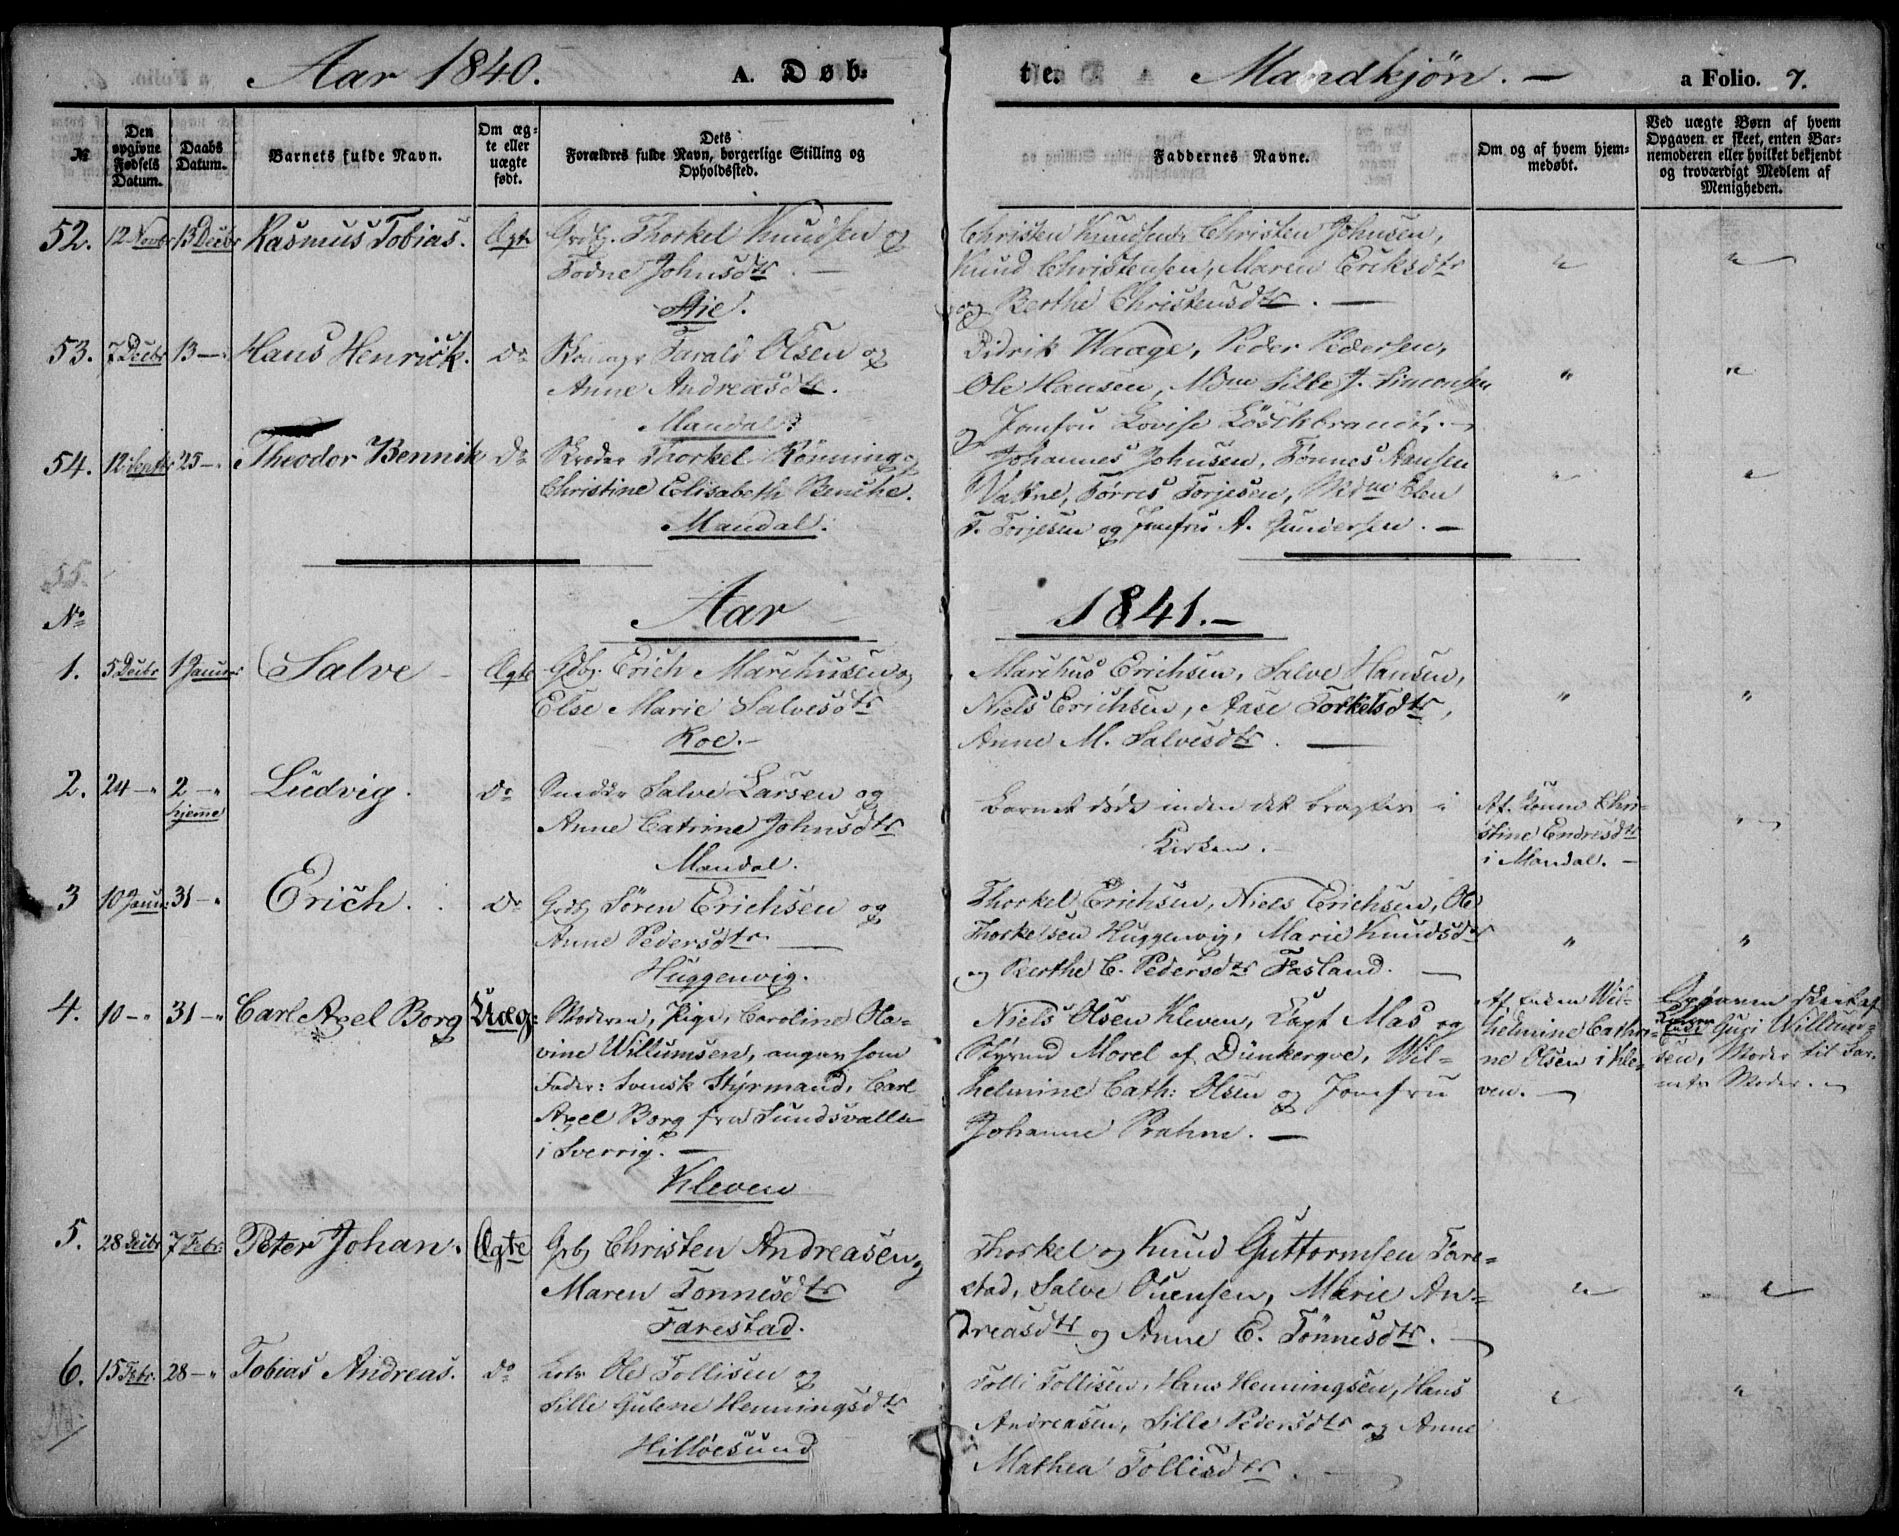 Aar 1840. A. Døb-
te. Mandkjøn. — a Folio. 7.
№
Den opgivne Fødsels Datum.
Daabs Datum.
Barnets fulde Navn.
Om ægte eller uægte født.
Dets Forældres fulde Navn, borgerlige Stilling og Opholdssted.
Faddernes Navne.
Om og af hvem hjemmedøbt.
Ved uægte Børn af hvem Opgaven er skeet, enten Barnemoderen eller hvilket bekjendt og troværdigt Medlem af Menigheden.
52. 12 Novbr 13 Decbr Rasmus Tobias. Ægte Grdbr. Thorkel Knudsen og
Todne Johnsdtr. —
Aie.
Christen Knudsen, Christen Johnsen,
Knud Christensen, Maren Eriksdtr
og Berthe Christensdtr. —
53. 7 Decbr 13 — " Hans Henrick. do Tarald Olsen og
Anne Andreasdtr.
Mandal.
Didrik Waage, Peder Pedersen,
Ole Hansen, Mdme Sille J. Simonsen
og Jomfru Lovise Löschbrandt. —
54. 12 Septbr 25 — " Theodor Bennik do Skræder Thorkel Rönning og
Christine Elisabeth Benche.
Mandal.
Johannes Johnsen, Tønnes Hansen
Vatne, Tørres Torjesen, Mdme Elen
T. Torjesen og Jomfru A. Gundersen. —
55.
№
Aar 1841. —
1. 5 Decbr 1 Januar Salve Ægte Gdbr. Erich Marchusen og
Else Marie Salvesdtr
Roe. —
Marchus Erichsen, Salve Hansen,
Niels Erichsen, Aase Torkelsdtr,
Anne M. Salvesdtr. —
2. 24 — " 2 — " Ludvig. do Salve Larsen og
hjemme
Anne Catrine Johnsdtr
Mandal.
Barnet døde inden det bragtes i
Kirken. —
Af Konen Chri-
stine Endresdtr
i Mandal. —
3 10 Januar 31 — " Erich. do Grdbr Søren Erichsen og
Anne Pedersdtr —
Huggenvig.
Thorkel Erichsen, Niels Erichsen, Ole
Thorkelsen Huggenvig, Marie Knudsdtr
og Berthe C. Pedersdtr Fasland. —
4. 10 — " 31 — " Carl Axel Borg Uæg: Moderen, Pige, Caroline Ola-
vine Willumsen, angav som
Fader: Svensk Styrmand, Carl
Axel Borg fra Sundsvalle
i Sverrig. —
Kleven
Niels Olsen Kleven, Capt Mas og
Styrmd Morel af Dünkerqve, Wil-
helmine Cath: Olsen og Jomfru
Johanne Prahm. —
Af Enken Wil-
helmine Cathri-
ne Olsen i Kle-
ven. —
Opgaven skeet af
Enke Guri Willum-
sen, Moder til Bar-
nets Moder. —
5. 28 Decbr 7 Febr: Peter Johan. Ægte Grbr Christen Andreasen og
Maren Tønnesdtr
Farestad.
Thorkel og Knud Guttormsen Fare-
stad, Salve Ouensen, Marie An-
dreasdtr og Anne E. Tönnesdtr. —
6. 15 Febr. 28 — " Tobias Andreas. do Lods Ole Tollisen og
Sille Gulene Henningsdtr
Hilløesund
Tolli Tollisen, Hans Henningsen, Hans
Andreasen, Sille Pedersdtr og Anne
Mathea Tollisdtr. —